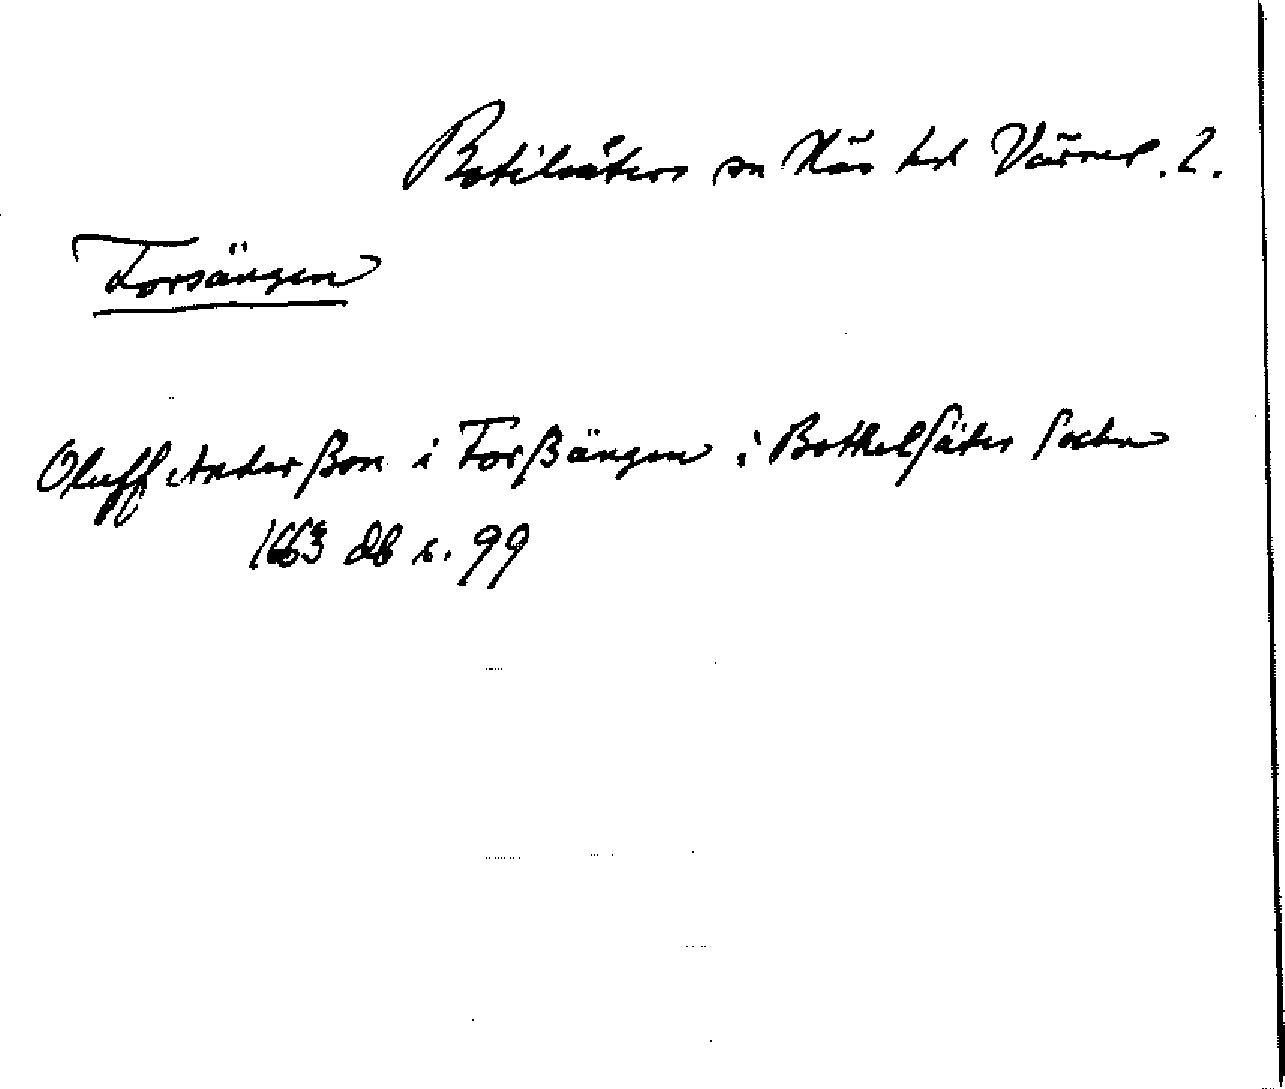 Botilsäters sn Näs hd Värml. l.
Forsängen
Oluff Anderßon i Forßängen i Bothelsäter sochn
1663 db s. 99